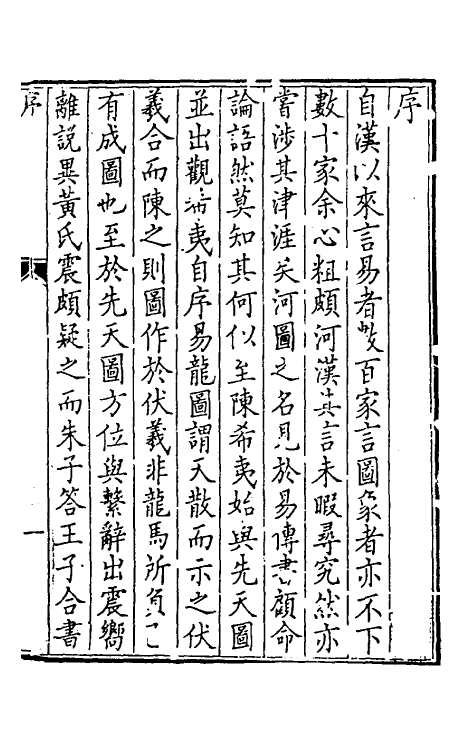 序
自漢以來言易者數百家言圖象者亦不下
數十家余心粗頗河漢其言未暇尋究然亦
嘗涉其津涯矣河圖之名見於易傳書顧命
論語然莫知其何似至陳希夷始與先天圖
並出觀希夷自序易龍圖謂天散而示之伏
羲合而陳之則圖作於伏羲非龍馬所負
有成圖也至於先天圖方位與繫辭出震嚮
離説異黃氏震頗疑之而朱子答王子合書
序
一